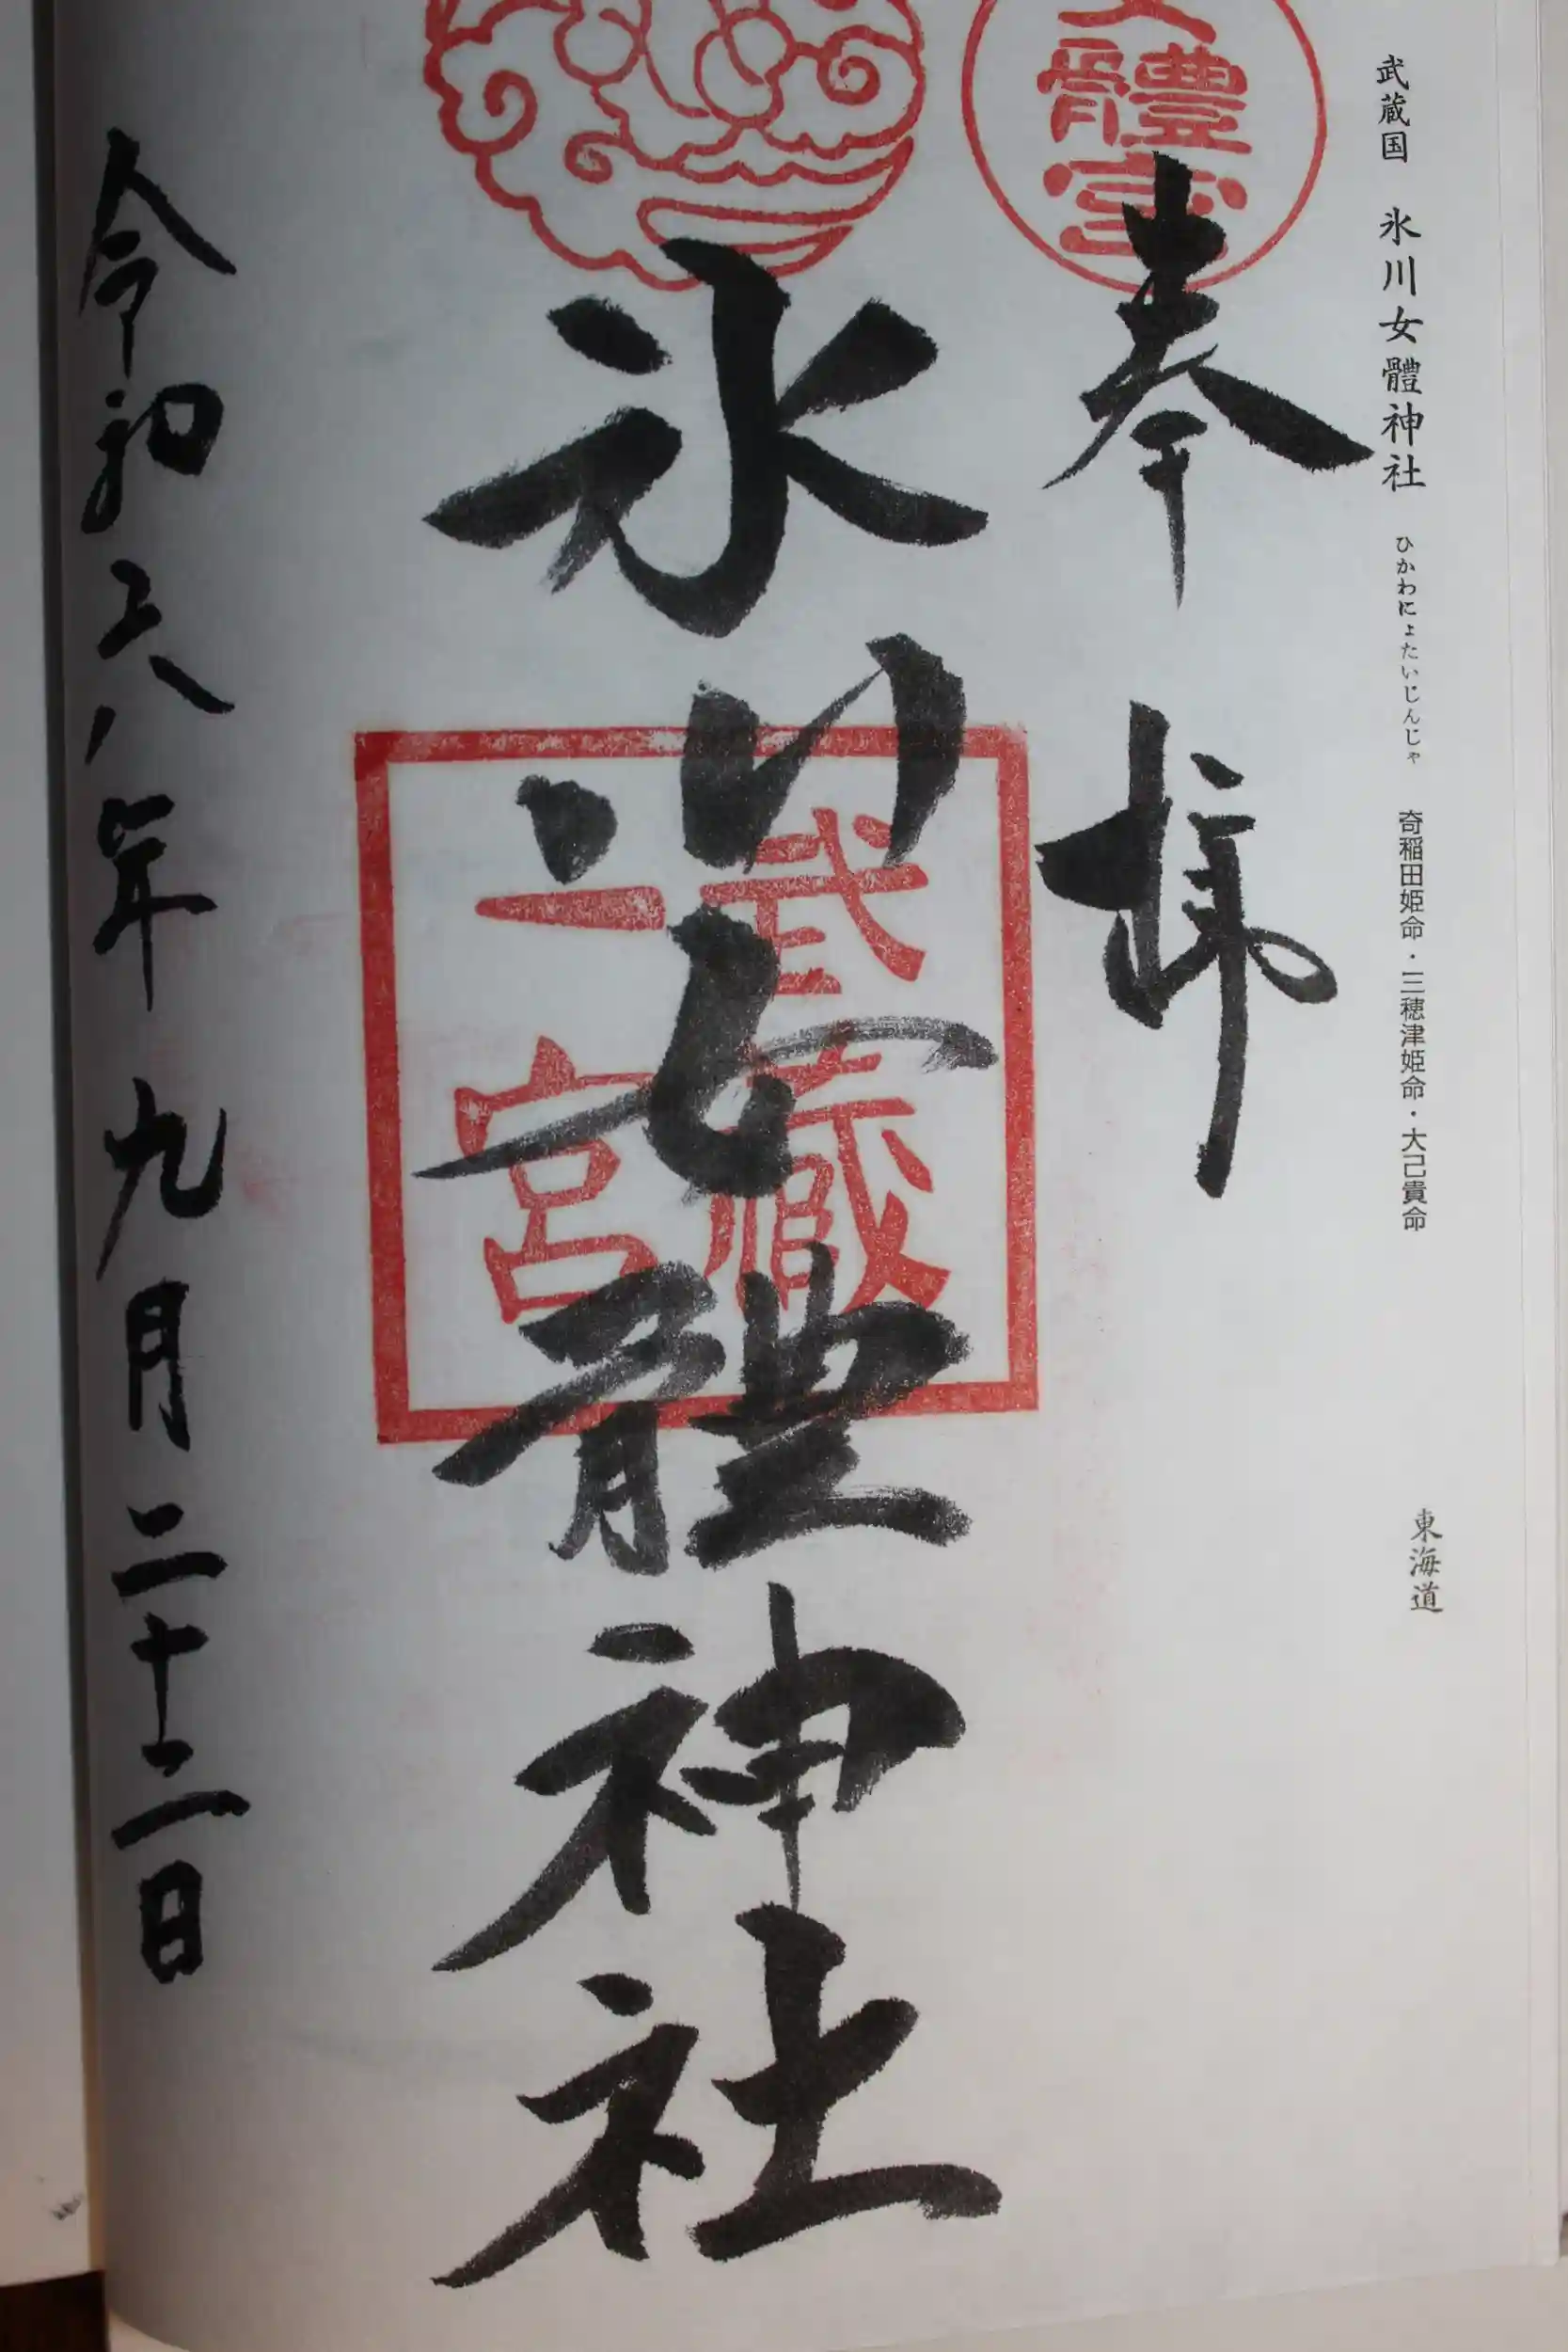 武蔵国 氷川女體神社 ひかわにょたいじんじゃ 奇稲田姫命・三穂津姫命・大己貴命 東海道
女體宮
奉拝
氷川女體神社
武蔵
一宮
令和六年九月二十二日